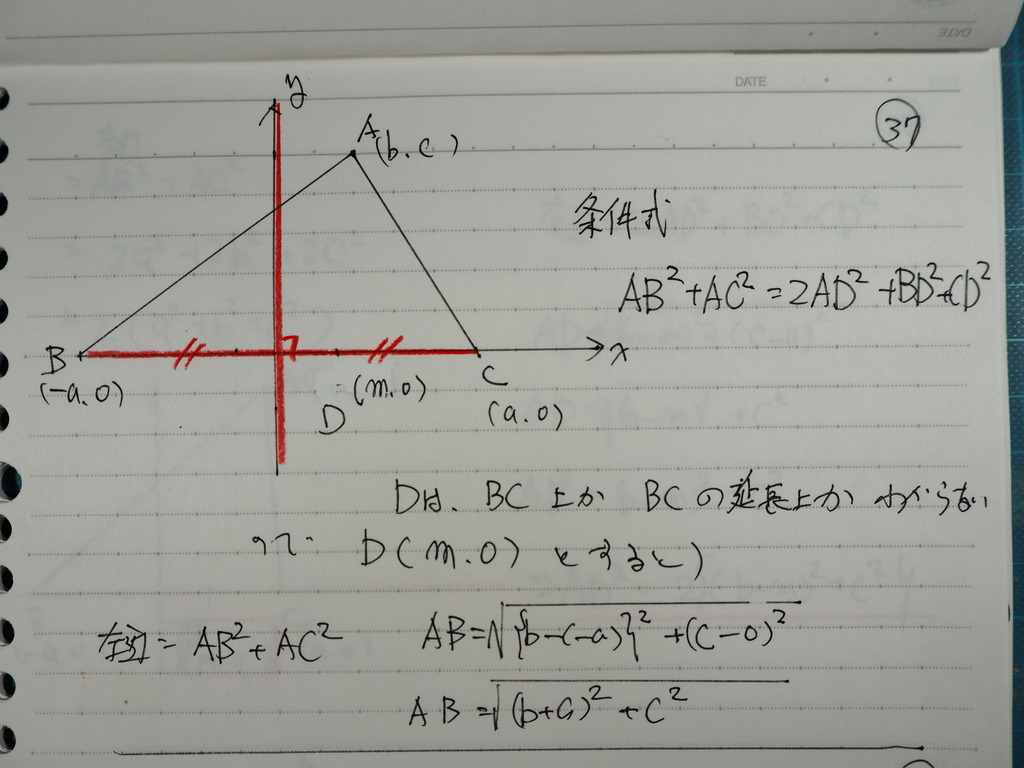 DATE
㊲
y
A(b.c)
条件式
AB²+AC²=2AD²+BD²+CD²
x
B
(-a.0)
(m.0)
D
C
(a.0)
Dは、BC上か BCの延長上か わからない
ので D(m.0)とすると)
左辺=AB²+AC²
AB=√{b-(-a)}²+(c-0)²
AB=√(b+a)²+c²